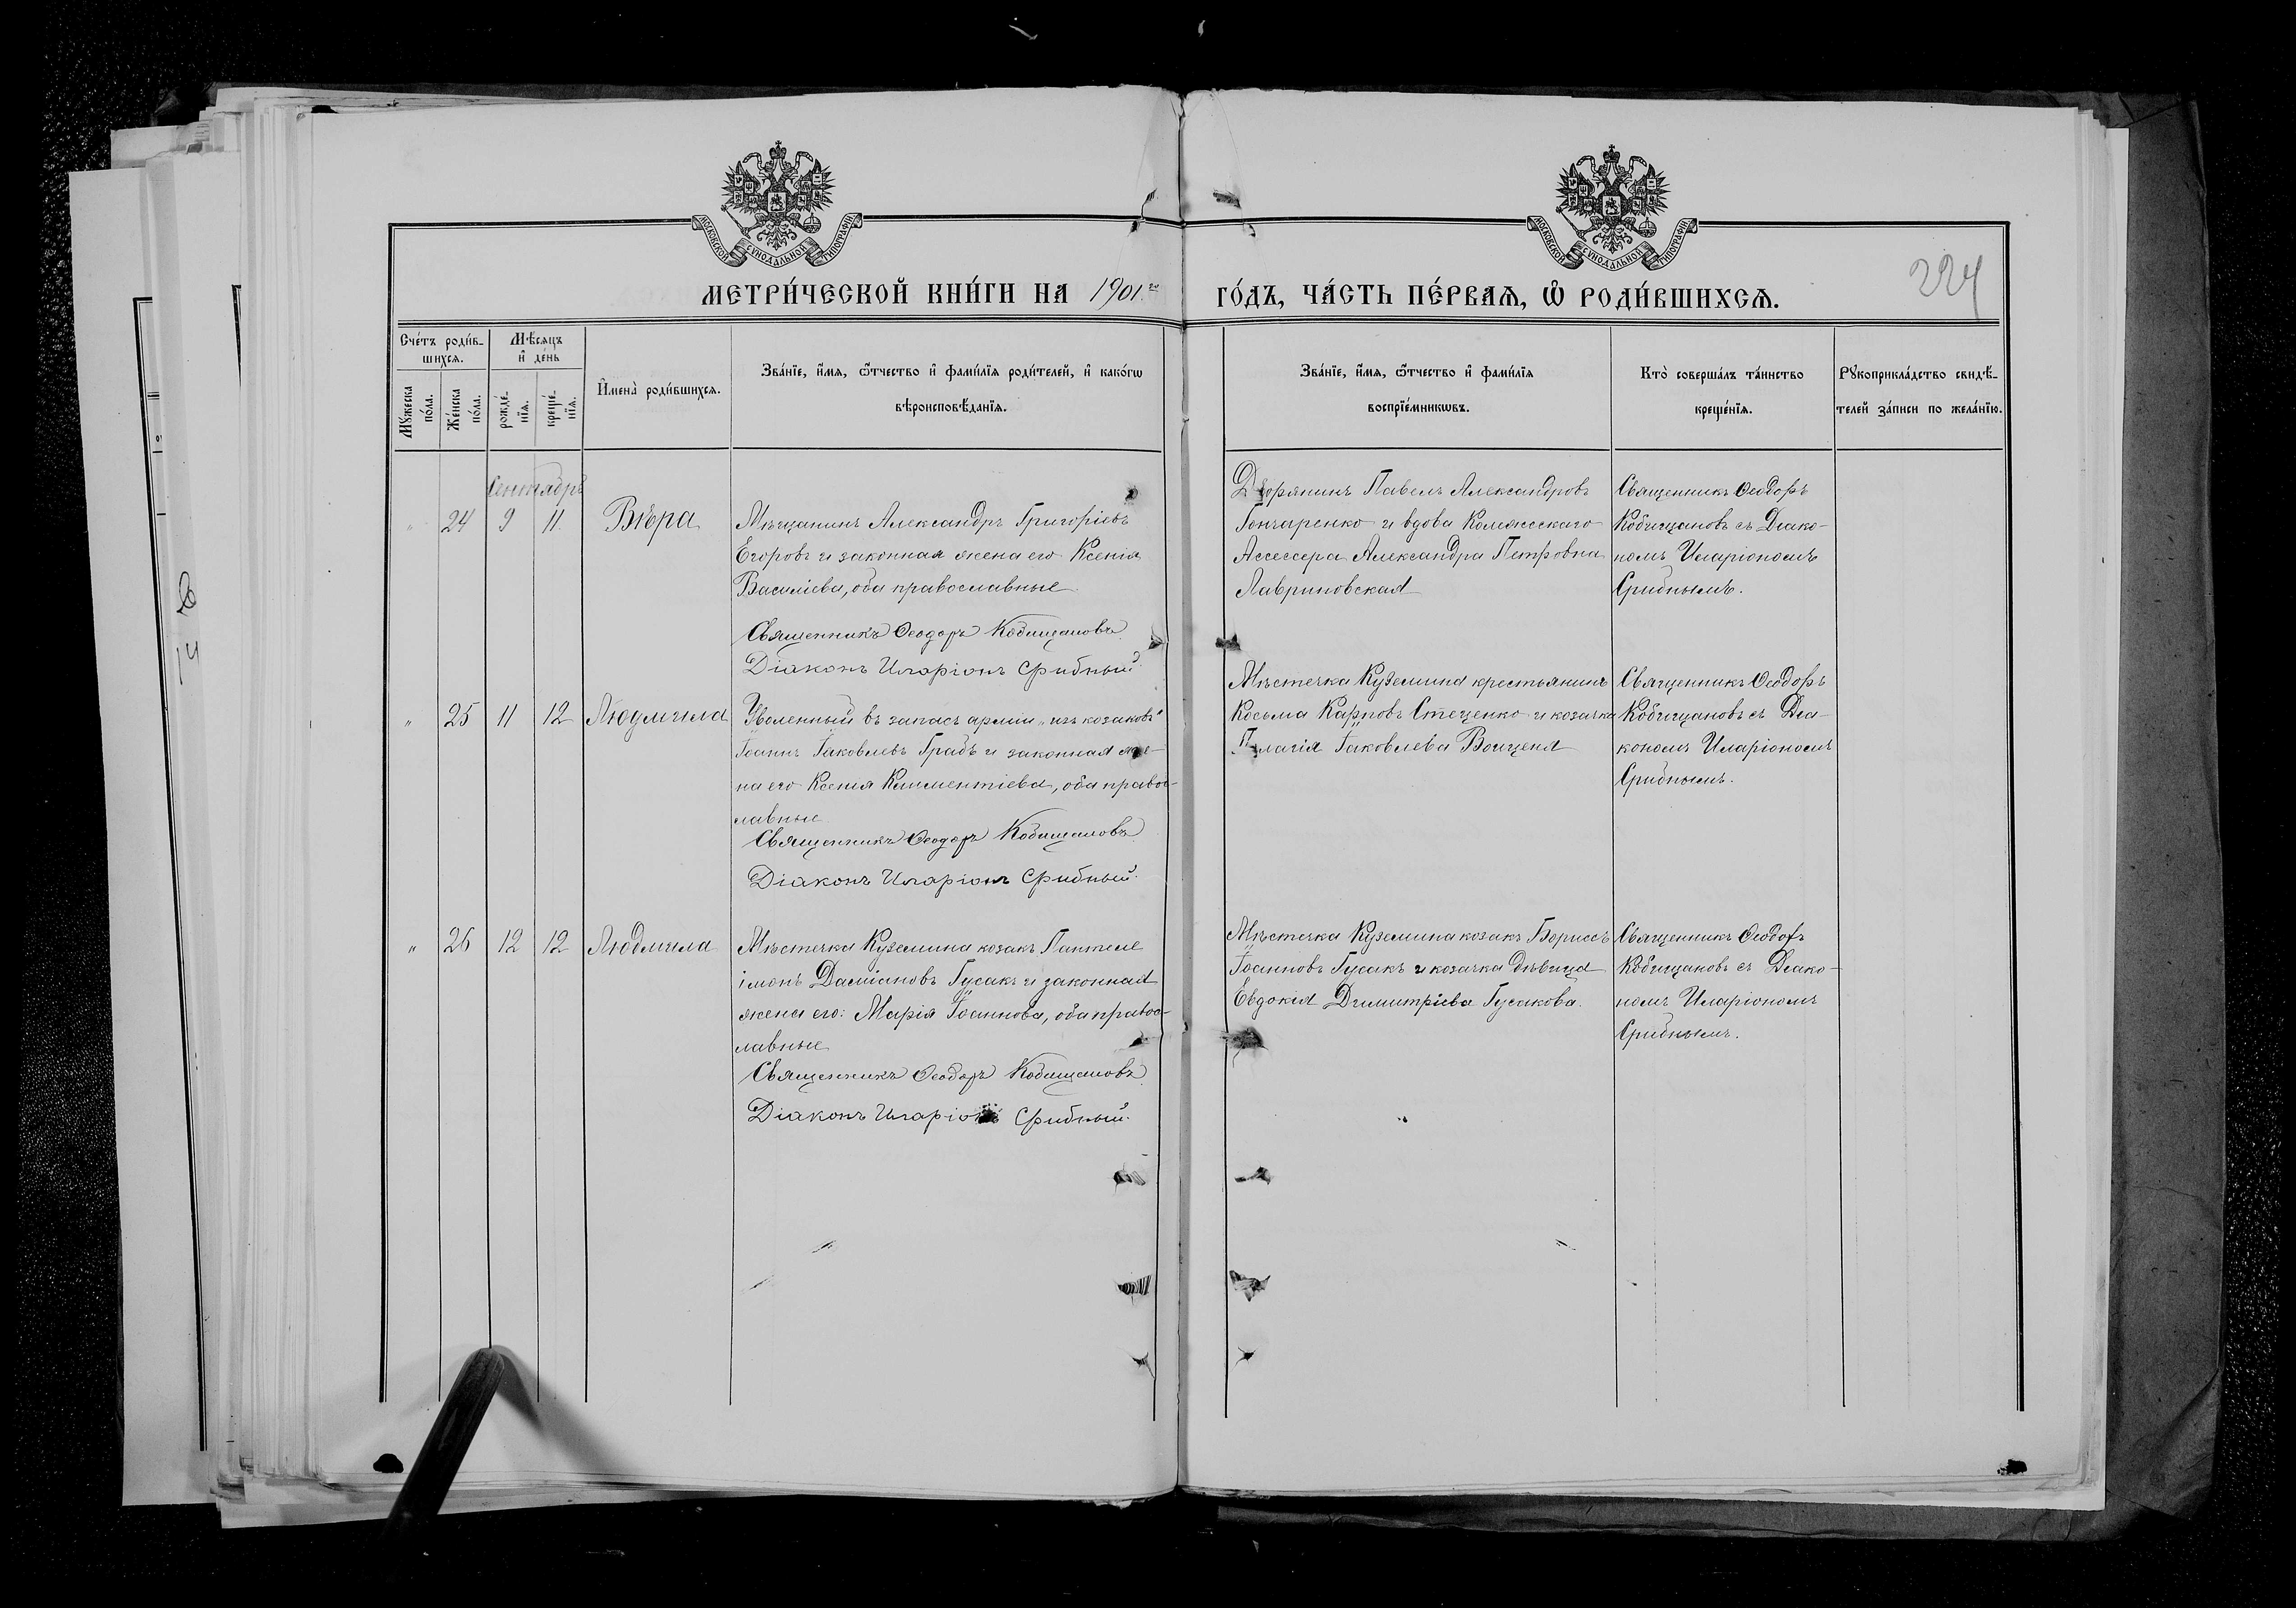 МОСКОВСКОЙ СУНОДАЛЬНОЙ ТИПОГРАФІИ
МОСКОВСКОЙ СУНОДАЛЬНОЙ ТИПОГРАФІИ
МЕТРИ́ЧЕСКОЙ КНИ́ГИ НА 1901 го
ГО́ДЪ, ЧА́СТЬ ПЕ́РВАѦ, Ѽ РОДИ́ВШИХСѦ.
224
Сче́тъ роди́в-
шихся.
Мѣ́сяцъ
и҆ де́нь
Мꙋ́жеска по́ла.
Же́нска по́ла.
рожде́-нїя.
креще́-нїя.
И҆мена̀ роди́вшихся.
Зва́нїе, и҆́мя, ѻ҆́тчество и҆ фами́лїя роди́телей, и҆ како́гѡ
вѣроисповѣ́данїя.
Зва́нїе, и҆́мя, ѻ҆́тчество и҆ фами́лїя
воспрїе́мникѡвъ.
Кто̀ соверша́лъ та́инство
креще́нїя.
Рꙋкоприкла́дство свидѣ́-
телей за́писи по жела́нїю.
Сентябрь
" 24 9 11 Вѣра
Мѣщанинъ Александръ Григоріевъ
Егоровъ и законная жена его Ксенія
Василіева, оба православные
Священникъ Ѳеодоръ Кобищановъ
Діаконъ Иларіонъ Срибный.
Дворянинъ Павелъ Александровъ
Гончаренко и вдова Колежскаго
Ассессора Александра Петровна
Лавриновская
Священникъ Ѳеодоръ
Кобищановъ съ Діако-
номъ Иларіономъ
Срибнымъ.
" 25 11 12 Людмила
Уволенный въ запасъ арміи "изъ козаковъ"
Іоаннъ Іаковлевъ Градъ и законная же-
на его Ксенія Климентіева, оба правос-
лавные
Священникъ Ѳеодоръ Кобищановъ
Діаконъ Иларіонъ Срибный.
Мѣстечка Куземина крестьянинъ
Косьма Карповъ Стеценко и козачка
Іаковлева Вощеня
Священникъ Ѳеодоръ
Кобищановъ съ Діа-
кономъ Иларіономъ
Срибнымъ.
" 26 12 12 Людмила
Мѣстечка Куземина козакъ Пантеле
імонъ Даміановъ Гусакъ и законная
жена его: Марія Іоаннова, оба правос-
лавные
Священникъ Ѳеодоръ Кобищановъ
Діаконъ Иларіонъ Срибный.
Мѣстечка Куземина козакъ Борисъ
Іоанновъ Гусакъ и козачка дѣвица
Евдокія Димитріева Гусакова.
Священникъ Ѳеодоръ
Кобищановъ съ Діако-
номъ Иларіономъ
Срибнымъ.